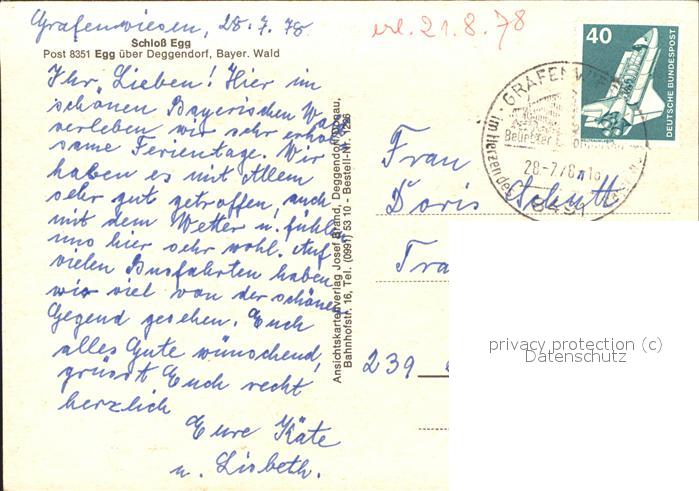 Grafenwiesen, 28.7.78
erl. 21.8.78
Schloß Egg
Post 8351 Egg über Deggendorf, Bayer. Wald
Ihr Lieben! Hier im
schönen Bayerischen W
verleben wir sehr erhol
same Ferientage. Wir
haben es mit Allem
sehr gut getroffen, auch
mit dem Wetter u. fühlen
uns hier sehr wohl. Auf
vielen Busfahrten haben
wir viel von der schönen
Gegend gesehen. Euch
alles Gute wünschend,
grüsst Euch recht
herzlich
Eure Käte
u. Lisbeth.
Ansichtskartenverlag Josef Brand, Deggendorf/Donau,
Bahnhofstr. 16, Tel. (0991) 53 10 - Bestell-Nr. 1226
40
DEUTSCHE BUNDESPOST
GRAFENWIESEN
Beliebter
im Herzen des
28.-7.78
8491
Frau
Doris Schutt
Tra
239
privacy protection (c)
Datenschutz